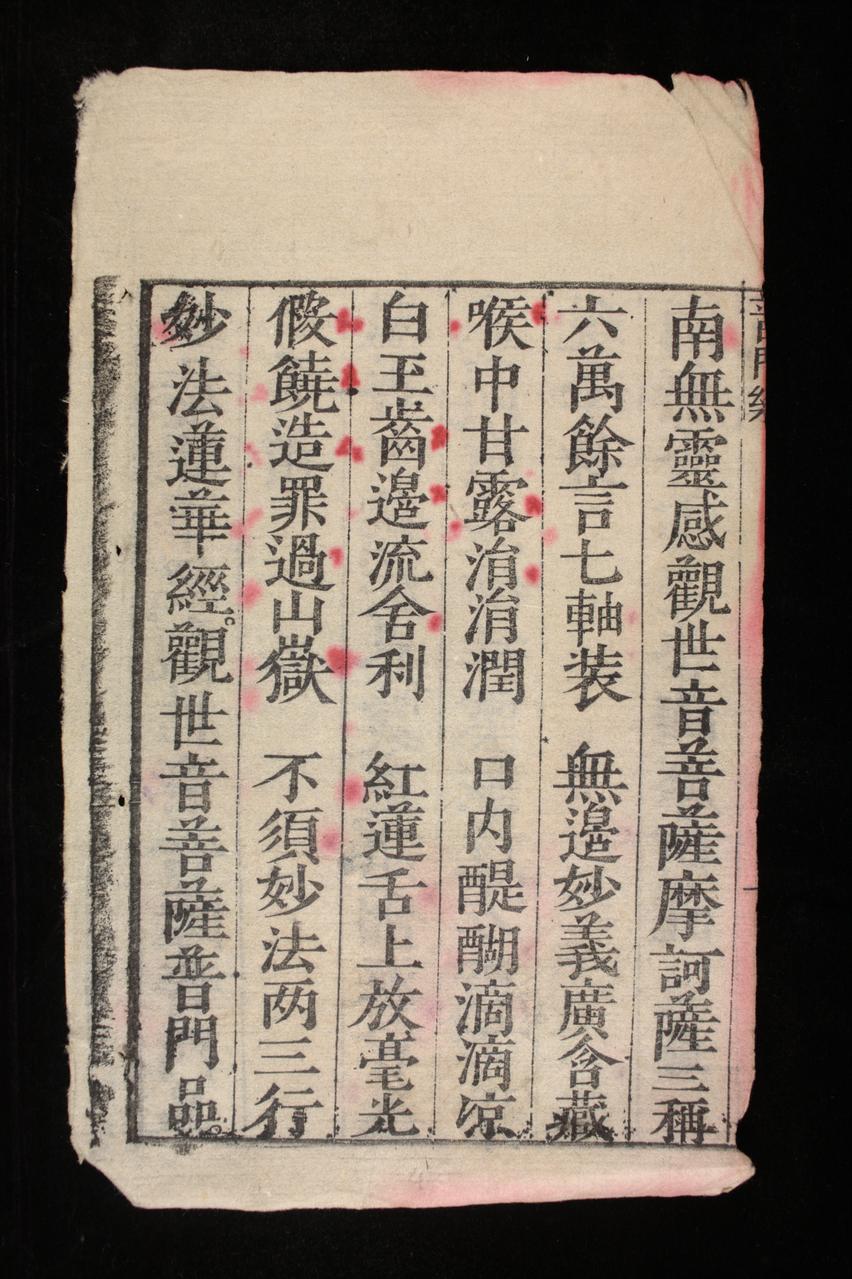 普門經
一
南無靈感觀世音菩薩摩訶薩三稱
六萬餘言七軸装　無邉妙義廣含藏
喉中甘露涓涓潤　口内醍醐滴滴凉
白玉齒邉流舍利　紅蓮舌上放毫光
假饒造罪過山嶽　不須妙法两三行
妙法蓮華經。觀世音菩薩普門品。